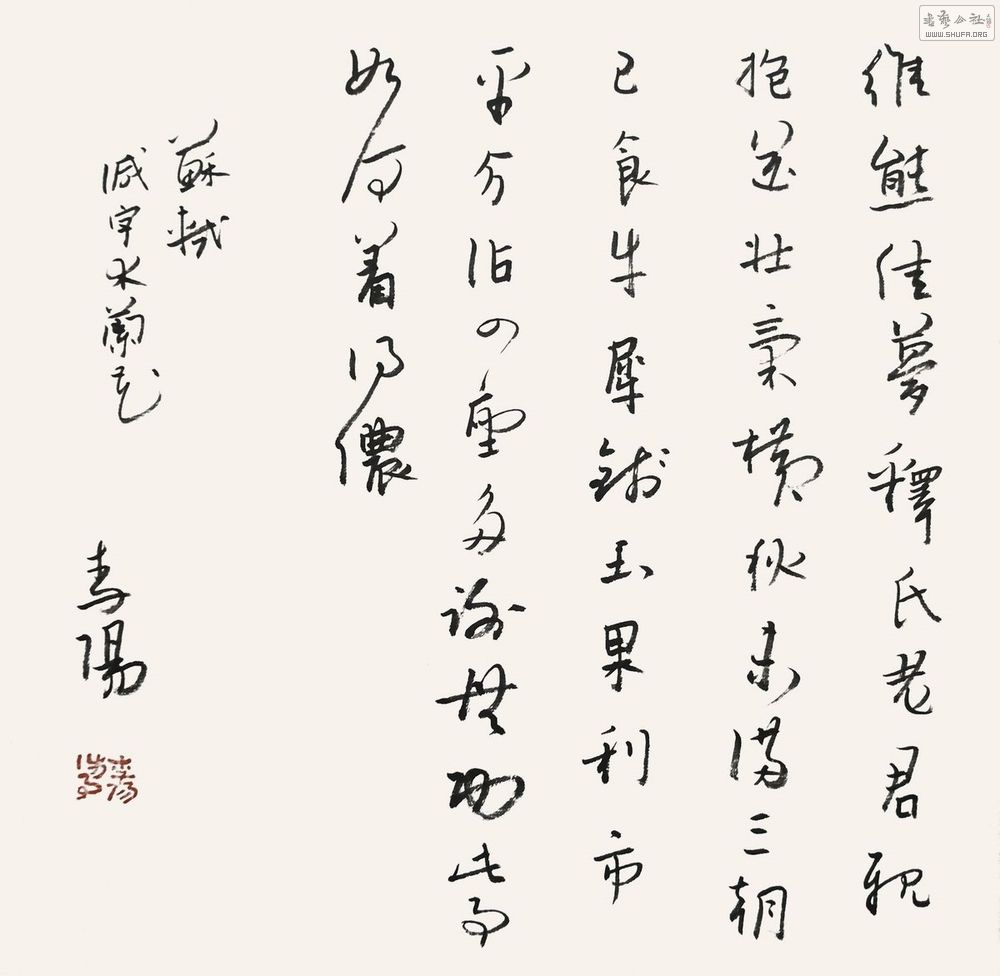 維熊佳夢釋氏老君親
抱送壯氣橫秋未滿三朝
已食牛犀錢玉果利市
平分沾四座多謝無功此事
如何着得儂
蘇軾
減字木蘭花
陽
書藝公社
WWW.SHUFA.ORG